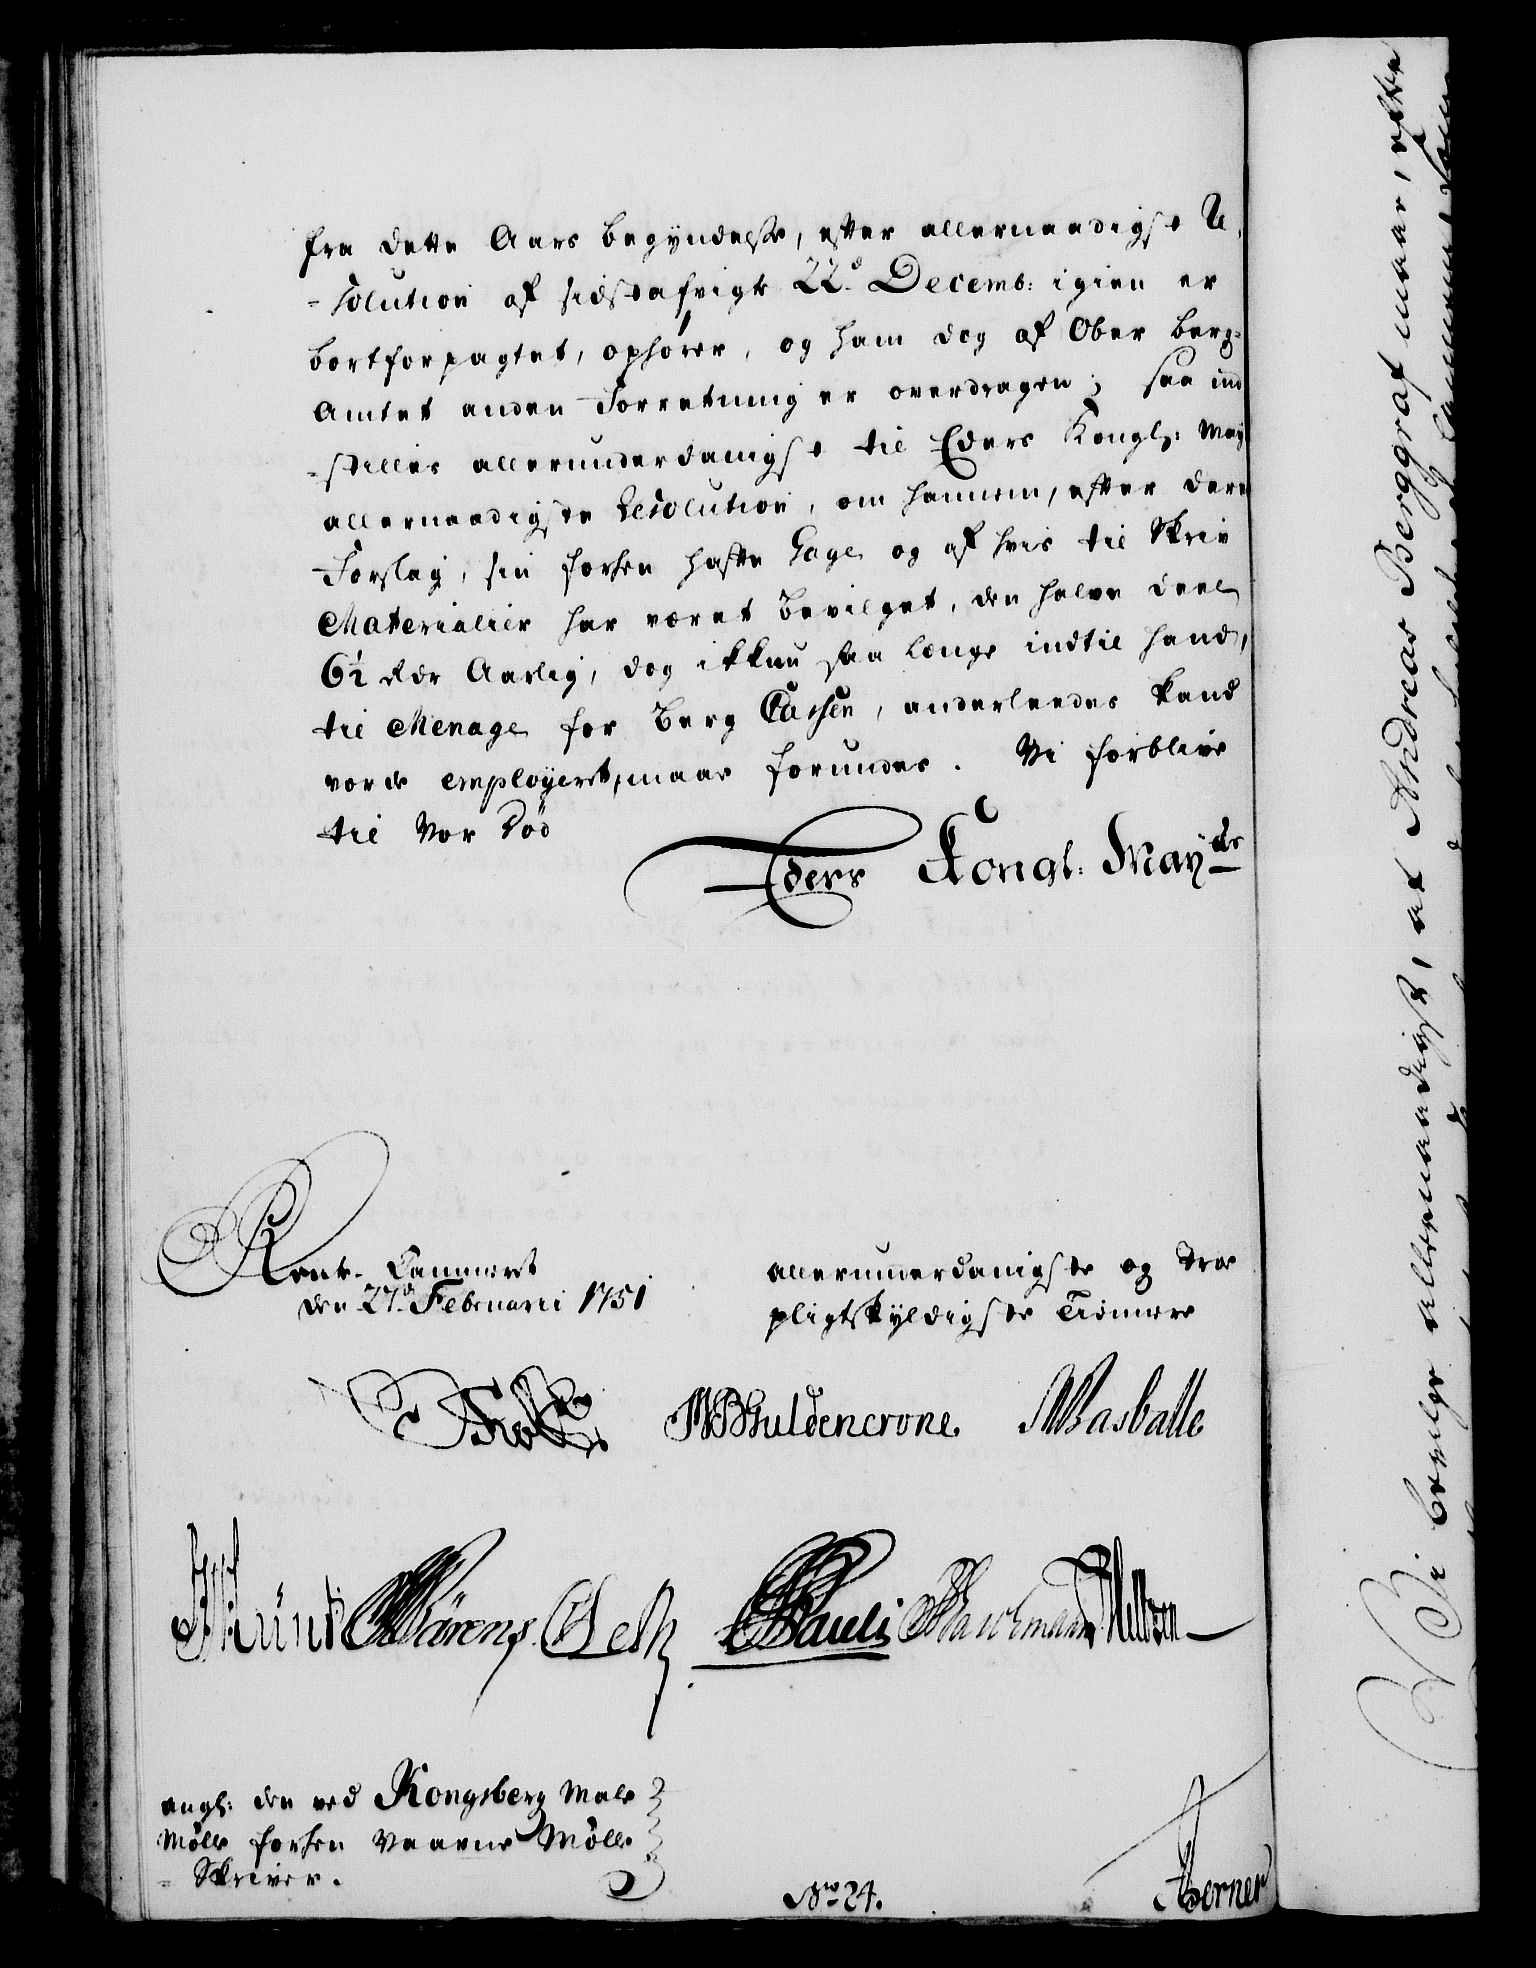 fra dette Aars begyndelse, efter allernaadigste Re
-solution af sidstafvigte 22.d Decemb: igien er
bortforpagtet, ophører, og ham dog af Ober Berg-
Amtet anden Forretning er overdragen; saa ind
-stilles allerunderdanigst til Eders Kongl: May
allernaadigste Resolution, om hannem, efter dere
Forslag, sin forhen hafte Gage og af hvis til Skriv
Materialier har været bevilget, den halve deel
6½ Rdr Aarlig, dog ikkun saa længe indtil hand,
til Menage for Berg Cassen, anderleedes kand
vorde employeret, maae forundes. Vi forblive
til Vor Død
Eders Kongl: Mayts
Rente-Cammeret
den 27.d Februarii 1751
allerunderdanigste og troe
pligtskyldigste Tienere
WBGuldencrone. MBasballe
Bärens. Selk. Pauli Wachmann
angl: den ved Kongsberg Male
Mølle forhen værende Mølle
- Skriver.
No 24.
Berner
Vi bevilge allernaadigst, at Andreas Berggraf maae, efter